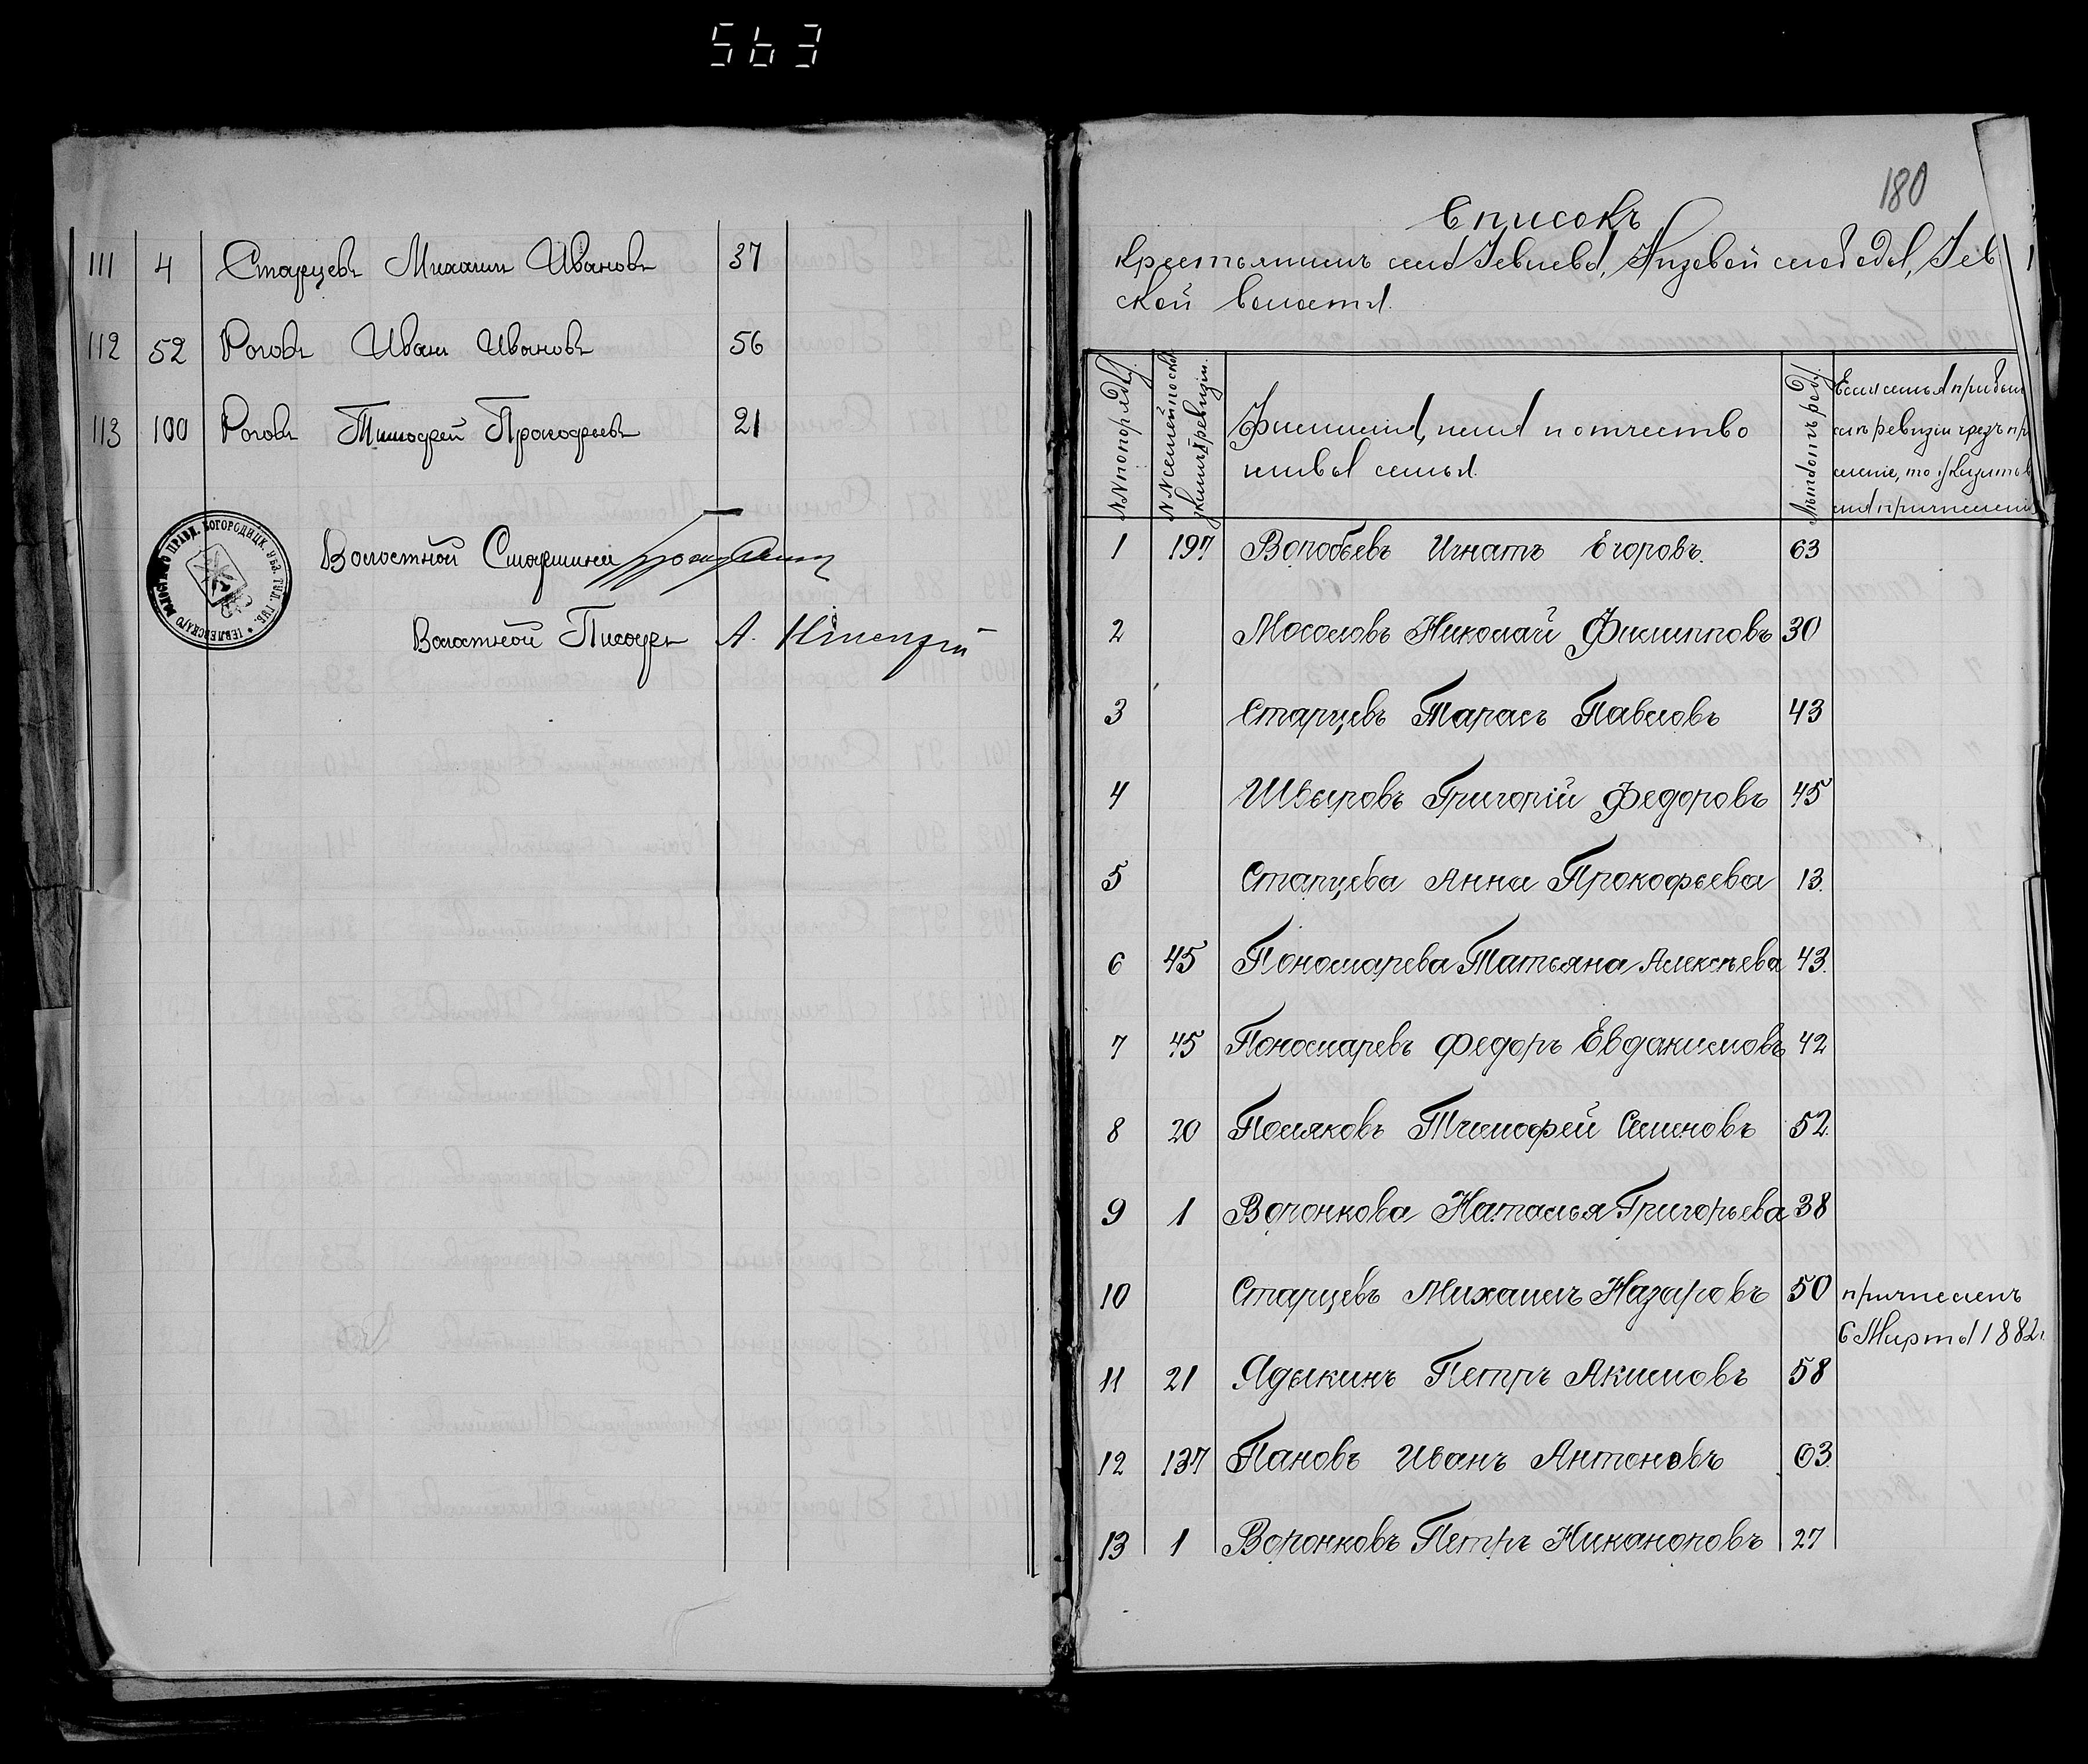 563
111 4 Старцевъ Михаилъ Ивановъ 37
112 52 Роговъ Иванъ Ивановъ 56
113 100 Роговъ Тимофей Прокофьевъ 21
ВОЛОСТНАГО ПРАВЛ. БОГОРОДИЦК. УѢЗ. ТУЛ. ГУБ. * ІЕВЛЕВСКАГО
Волостной Старшина
Волостной Писарь А.
180
Списокъ
крестьянамъ села Іевлева, Низовой слободы, Іев
ской волости.
№№ по порядку.
№№ семей по сказкамъ X ревизіи.
Фамилія, имя и отчество
главы семьи
Лѣтъ отъ роду.
Если семья прибыла
къ ревизіи чрезъ при
исленіе, то указать в
1 197 Воробьевъ Игнатъ Егоровъ. 63
2 Мосоловъ Николай Филипповъ 30
3 Старцевъ Тарасъ Павловъ 43
4 Швыровъ Григорій Федоровъ 45
5 Старцева Анна Прокофьева 13.
6 45 Пономарева Татьяна Алексѣева 43.
7 45 Пономаревъ Федоръ Евдакимовъ 42
8 20 Поляковъ Тимофей Семеновъ 52.
9 1 Воронкова Наталья Григорьева 38
10 Старцевъ Михаилъ Назаровъ 50 причисленъ
6 Марта 1882 г.
11 21 Ядыкинъ Петръ Акимовъ 58
12 137 Пановъ Иванъ Антоновъ 63
13 1 Воронковъ Петръ Никаноровъ 27